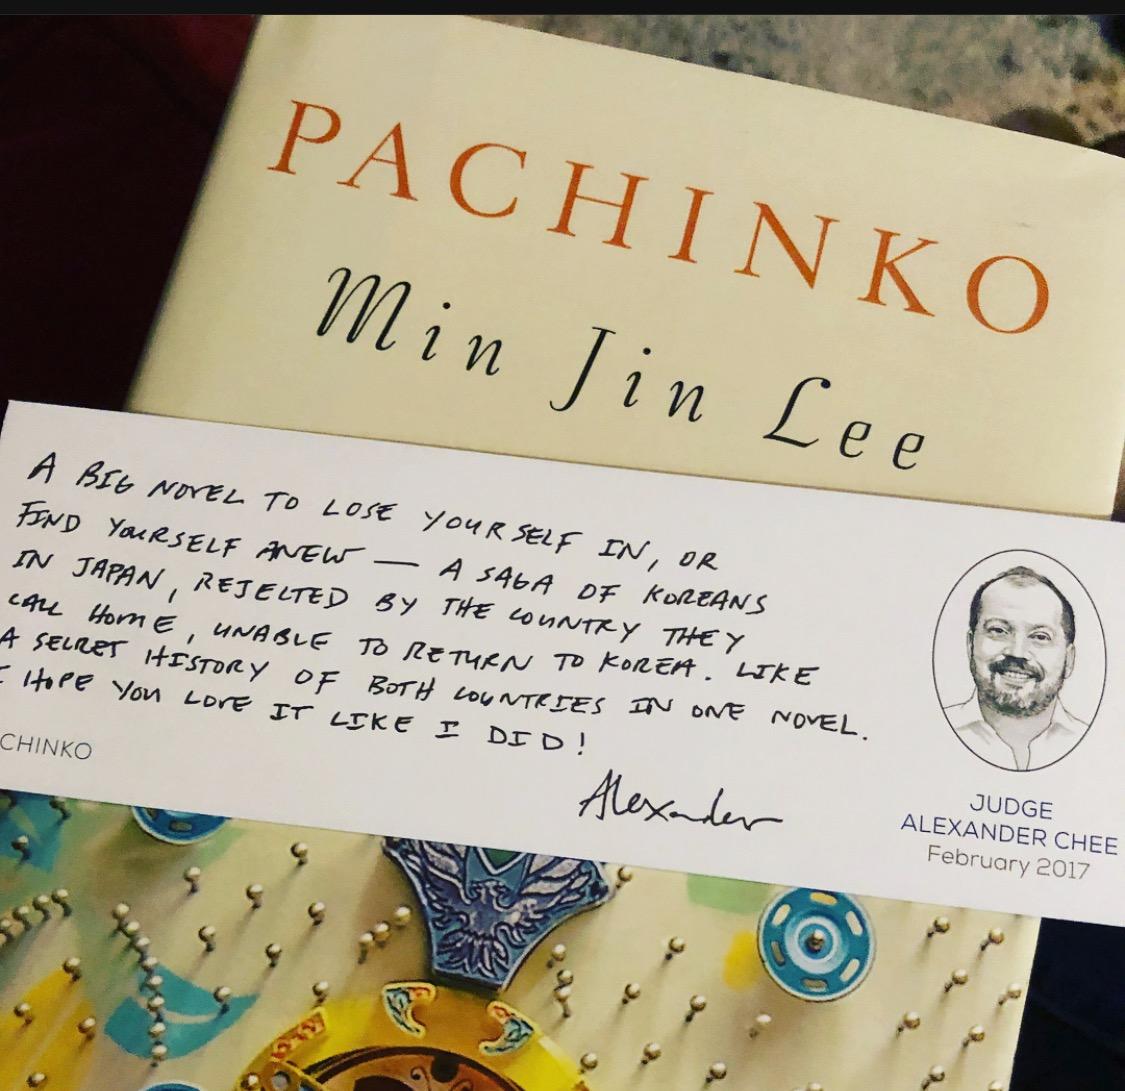 PACHINKO
Min Jin Lee
A BIG NOVEL TO LOSE YOURSELF IN, OR
FIND YOURSELF ANEW — A SAGA OF KOREANS
IN JAPAN, REJECTED BY THE COUNTRY THEY
CALL HOME, UNABLE TO RETURN TO KOREA. LIKE
A SECRET HISTORY OF BOTH COUNTRIES IN ONE NOVEL.
I HOPE YOU LOVE IT LIKE I DID!
Alexander
CHINKO
JUDGE
ALEXANDER CHEE
February 2017